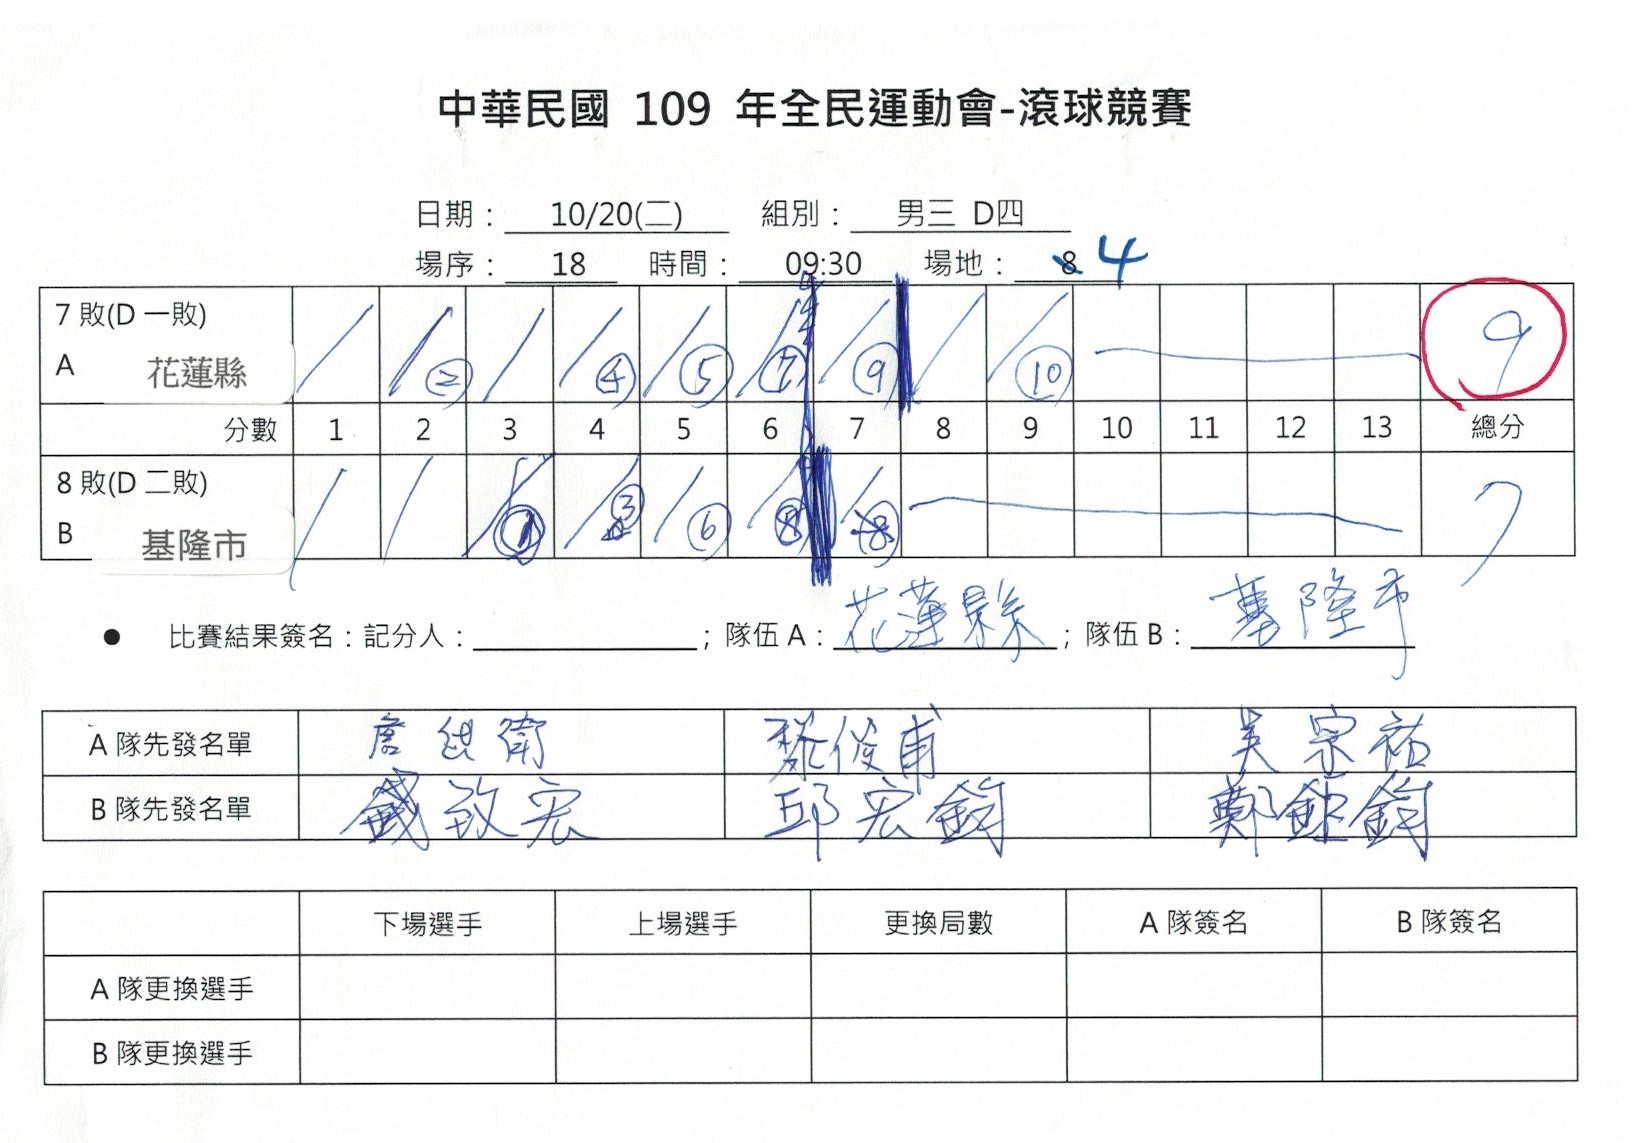 中華民國 109 年全民運動會-滾球競賽
日期： 10/20(二) 組別： 男三 D四
場序： 18 時間： 09:30 場地： 8 4
7 敗(D 一敗)
A 花蓮縣 2 4 5 7 9 10 9
分數 1 2 3 4 5 6 7 8 9 10 11 12 13 總分
8 敗(D 二敗)
B 基隆市 1 3 6 8 8 7
● 比賽結果簽名：記分人： ；隊伍 A： 花蓮縣 ；隊伍 B： 基隆市
A 隊先發名單 俊甫 吳宗祐
B 隊先發名單 戴致宏 邱宏鈞 鄭鈞
下場選手 上場選手 更換局數 A 隊簽名 B 隊簽名
A 隊更換選手
B 隊更換選手